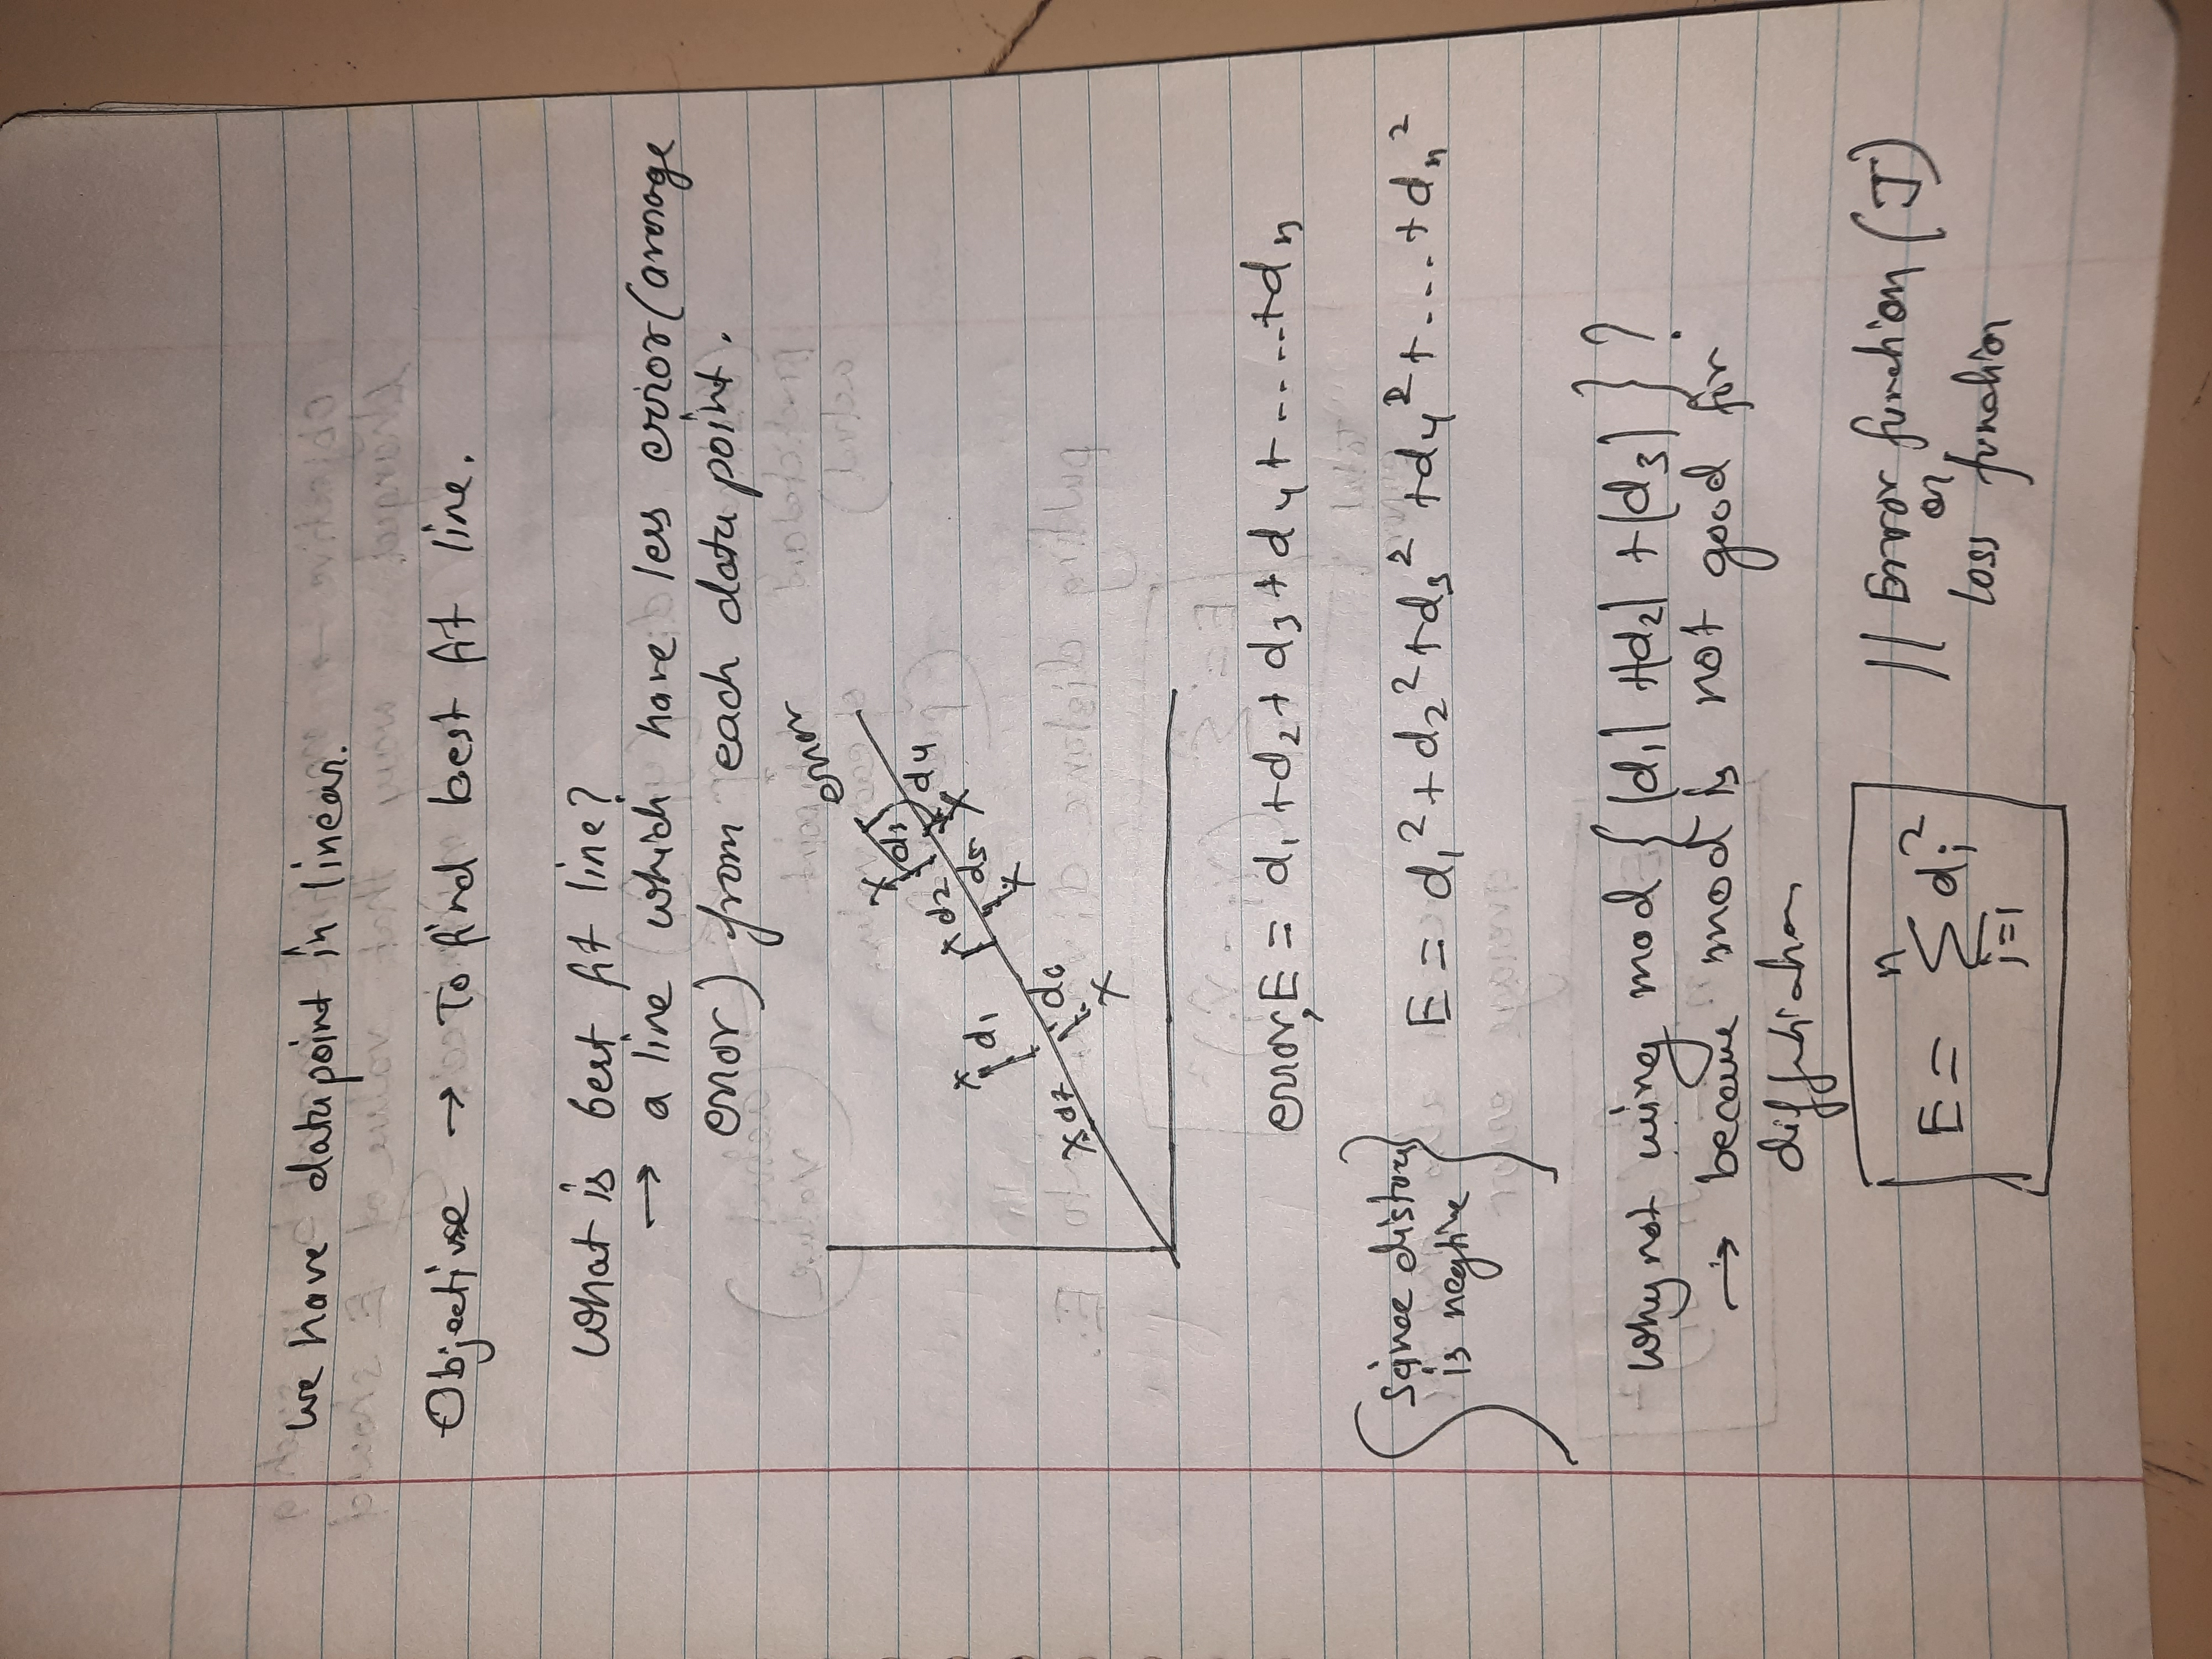 We have datapoint in linear.
Objective → To find best fit line.
What is best fit line?
→ a line which have less error (average
error) from each data point.
error
x d3
x d2 d4
x d1 d5 x
x
x d7 d6
x
error, E = d₁ + d₂ + d₃ + d₄ + ..... + dₙ
E = d₁² + d₂² + d₃² + d₄² + .... + dₙ²
is
Why not using mod { |d₁| + |d₂| + |d₃| } ?
→ because mod is not good for
E = n Σ i=1 dᵢ² || Error function (J)
or
loss function